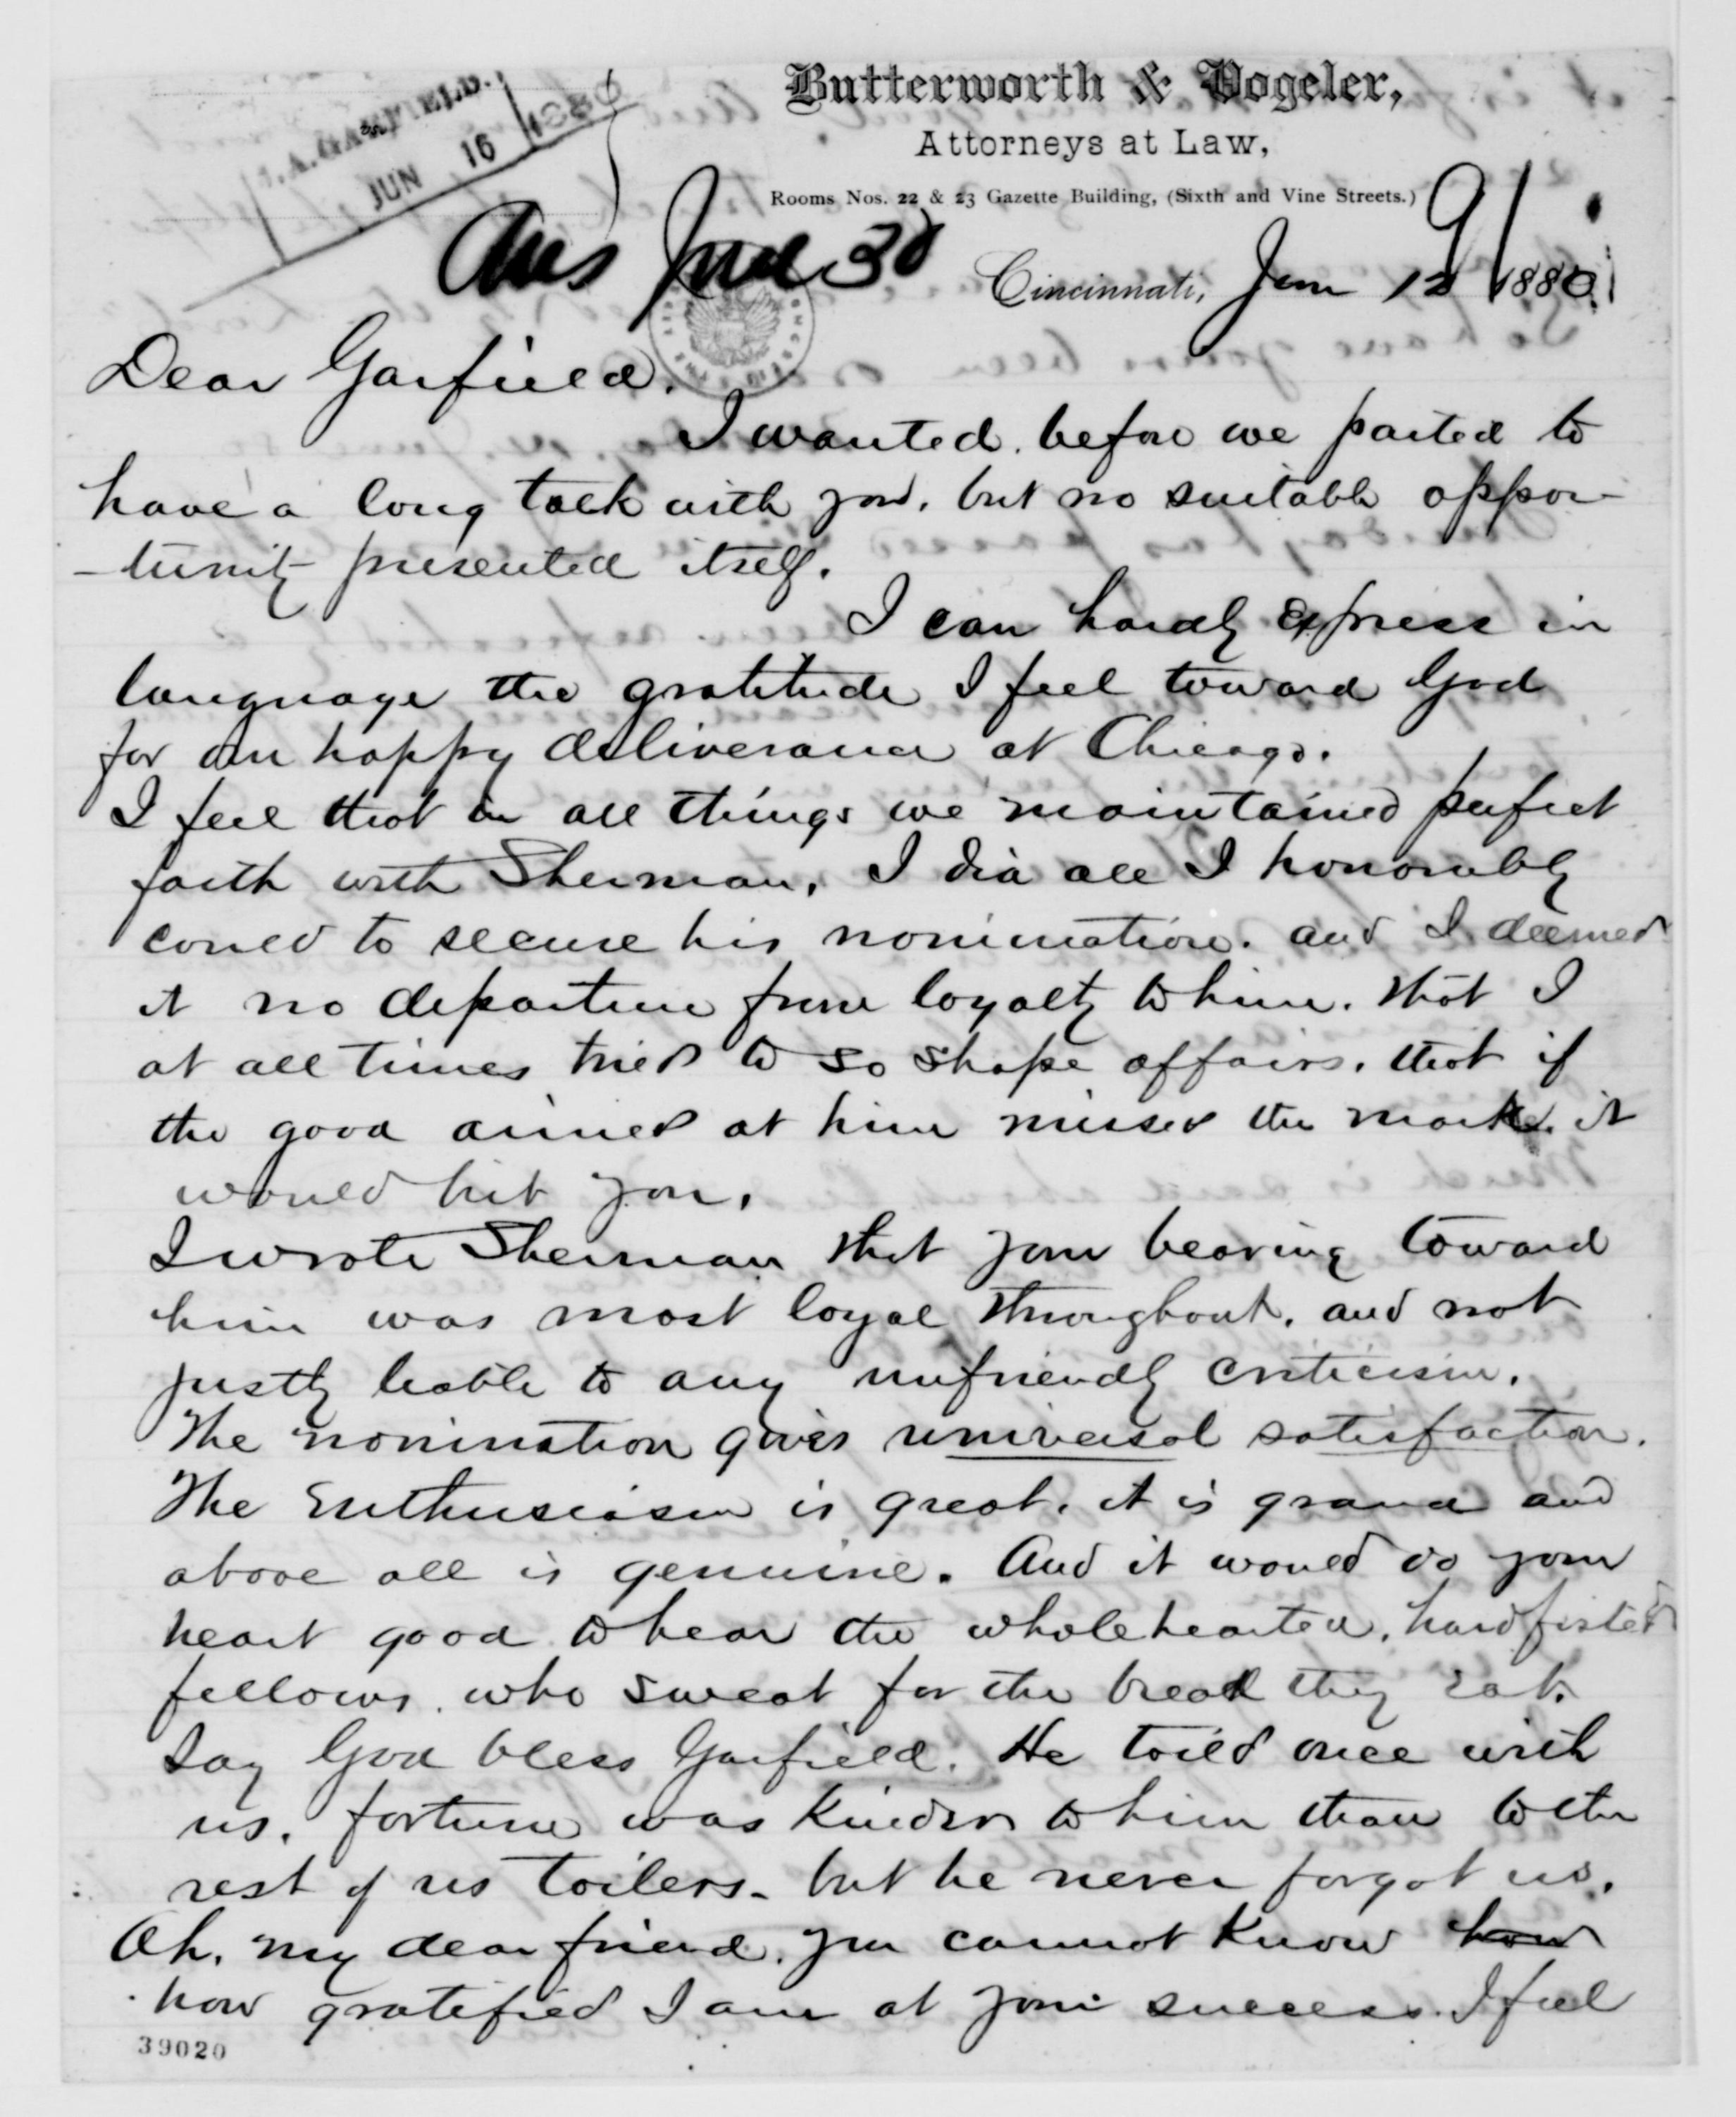 Butterworth & Vogeler,
Attorneys at Law,
Rooms Nos. 22 & 23 Gazette Building, (Sixth and Vine Streets.)
J. A. GARFIELD.
JUN 16 1880
Ans June 30
91
Cincinnati, Jun 12 1880
Dear Garfield.
I wanted. before we parted to
have a long talk with you. but no suitable oppor-
-tunity presented itself.
I can hardly express in
language the gratitude I feel toward God
for our happy deliverance at Chicago.
I feel that in all things we maintained perfect
faith with Sherman. I did all I honorably
could to secure his nomination. and I deemed
it no departure from loyalty to him. that I
at all times tried to so shape affairs. that if
the good aimed at him missed the mark. it
would hit you.
I wrote Sherman that your bearing toward
him was most loyal throughout. and not
justly liable to any unfriendly criticism.
The nomination gives universal satisfaction.
The Enthusiasm is great. it is grand and
above all is genuine. And it would do your
heart good to hear the wholehearted. hardfisted
fellows. who sweat for the bread they eat.
say God bless Garfield. He toild once with
us. fortune was kinder to him than to the
rest of us toilers. but he never forgot us.
Oh. my dear friend. you cannot know how
how gratified I am at your success. I feel
39020